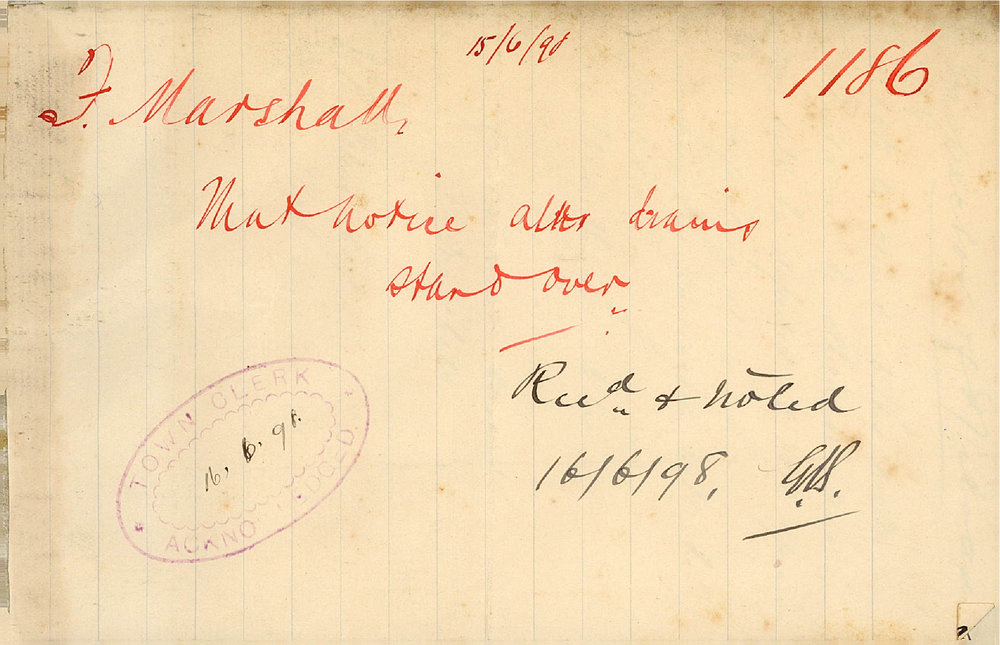 15/6/98
1186
F. Marshall,
That notice alter drains
stand over
Recd & noted
16/6/98. GS.
TOWN CLERK
16. 6. 98.
ACKNO